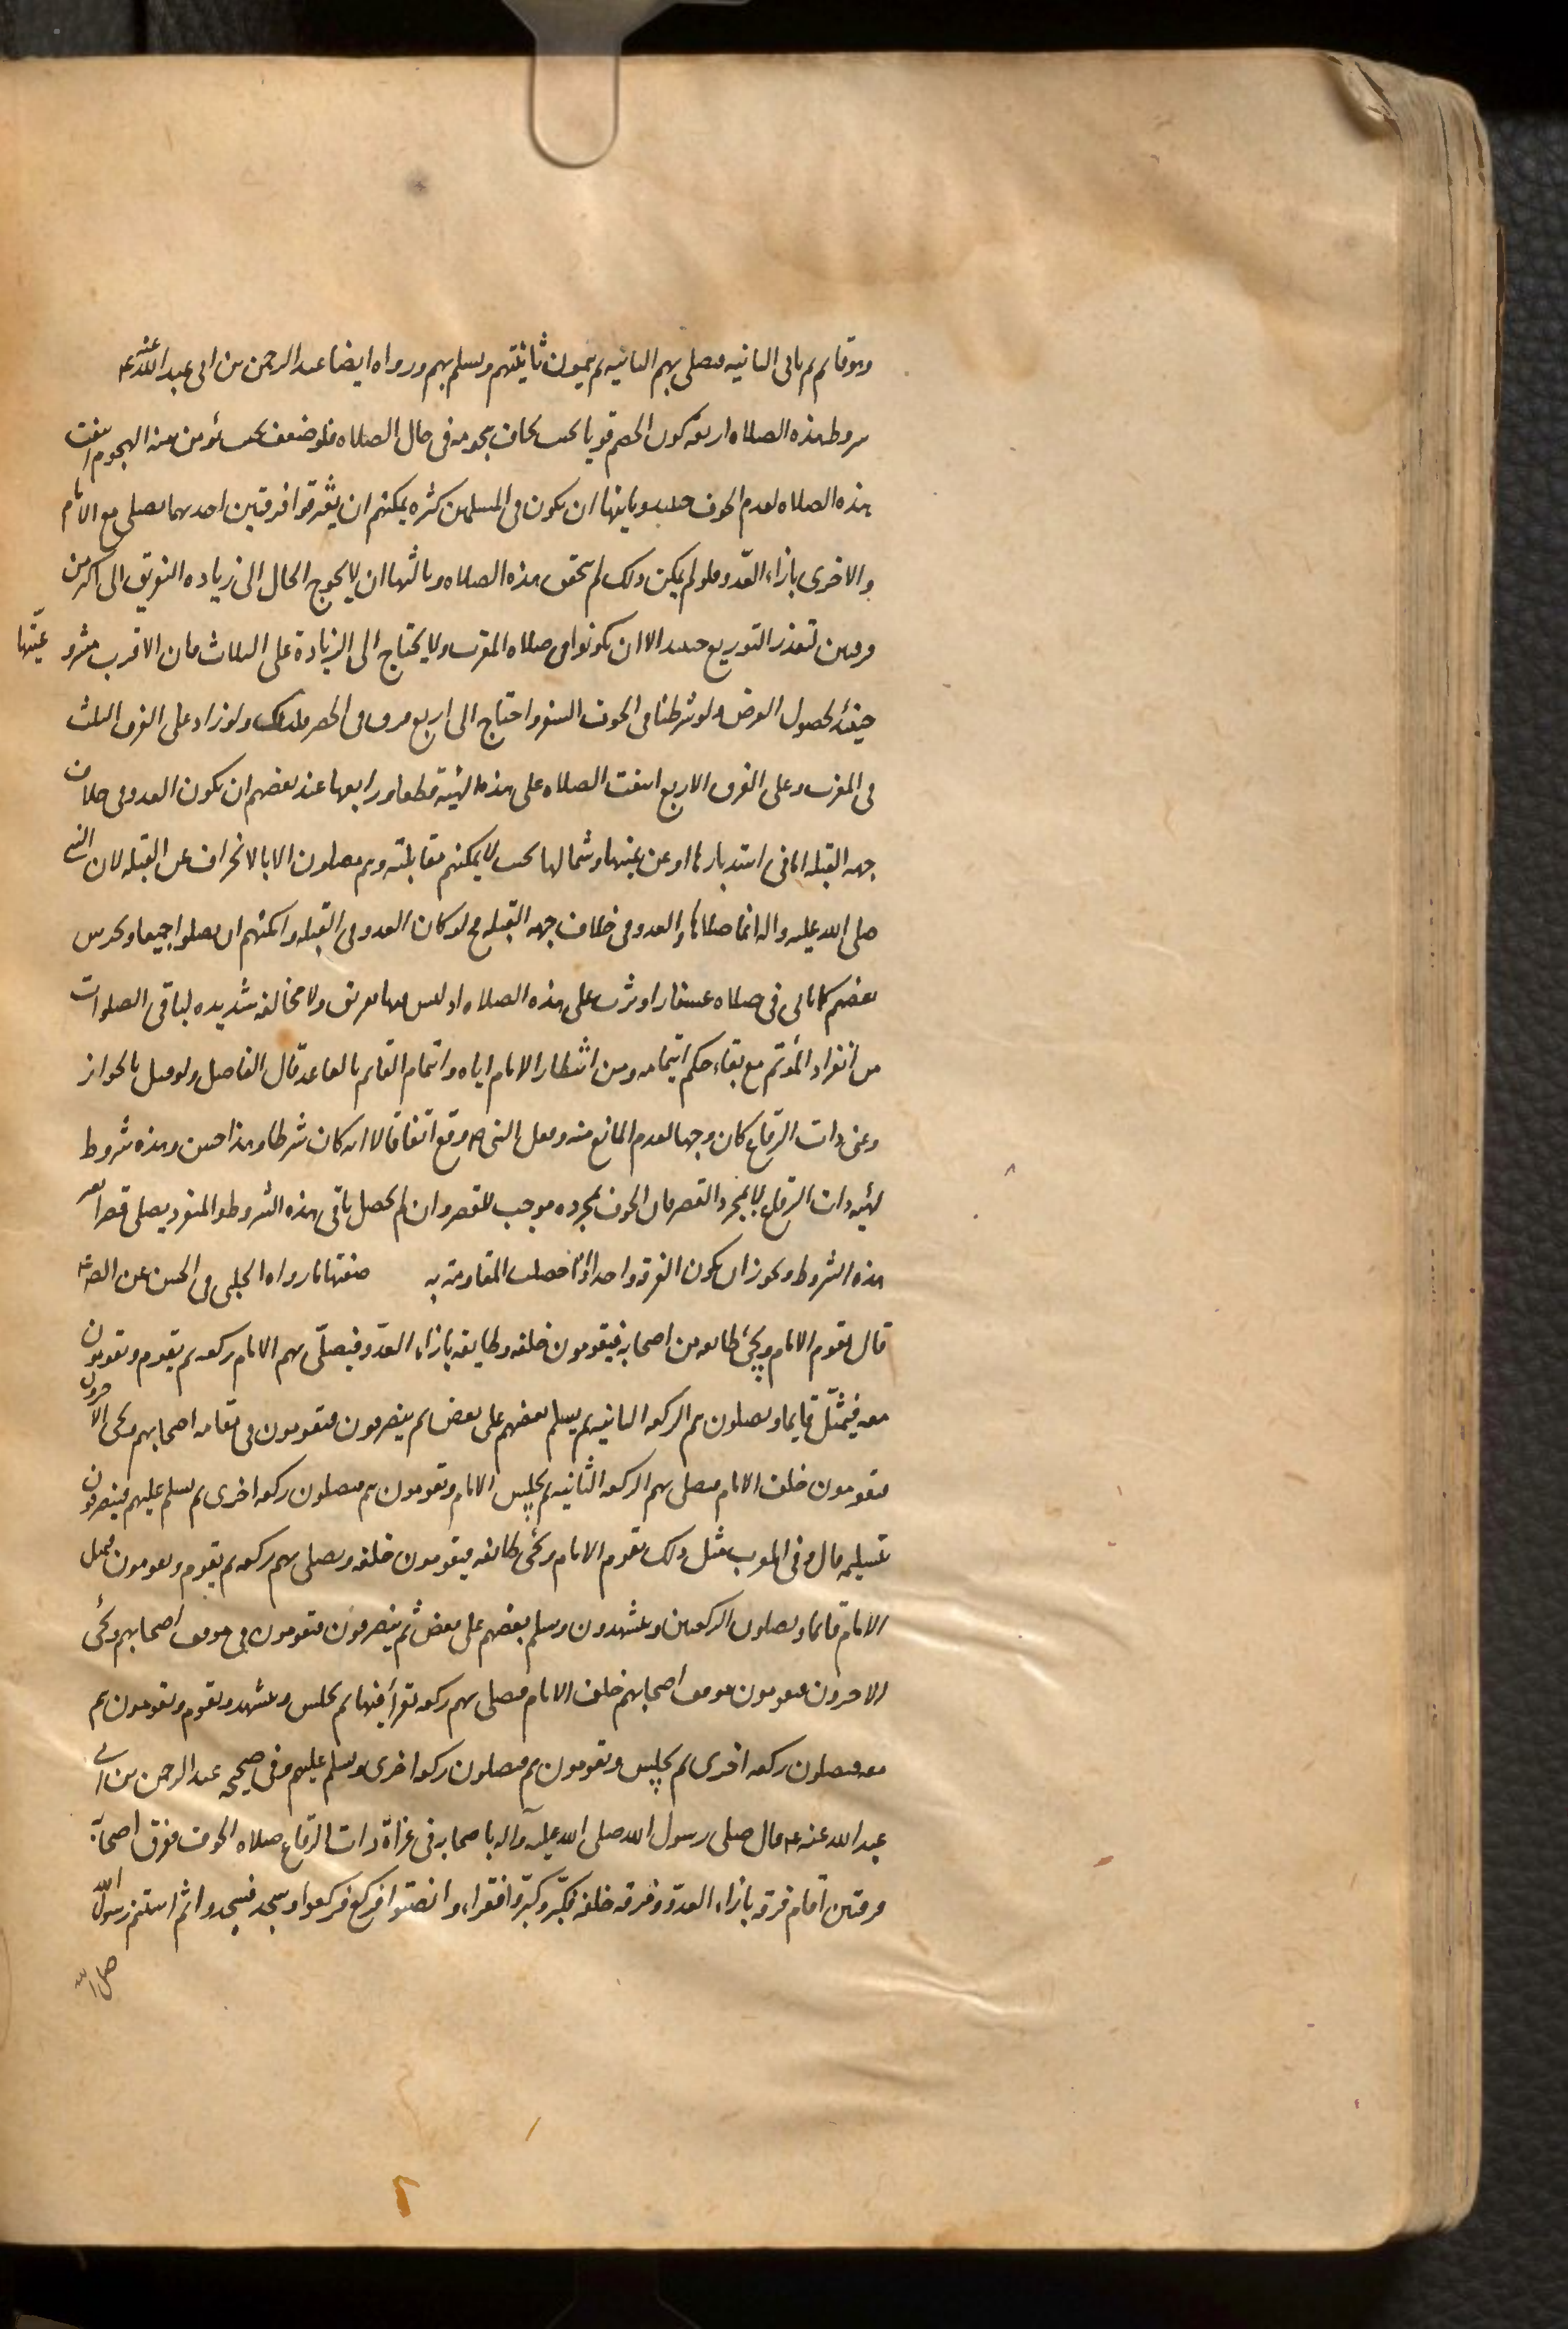 وهو قائم ثم يأتي الثانيه فيصلي بهم الثانيه ثم يتمون ثانيتهم ويسلم بهم ورواه ايضا عبد الرحمن بن ابي عبد الله عنه ع
شروط هذه الصلاه اربعه كون الخصم قويا بحيث يخاف هجومه في حال الصلاه فلو ضعف بحيث يؤمن منه الهجوم انتفت
هذه الصلاه لعدم الخوف حينئذ وثانيها ان يكون في المسلمين كثره يمكنهم ان يفترقوا فرقتين احديهما يصلي مع الامام
والاخرى بازاء العدو فلو لم يكن ذلك لم تتحقق هذه الصلاه وثالثها ان لا يحوج الحال الى زياده التفريق الى اكثر من
فرقتين لتعذر التوزيع حينئذ الا ان يكونوا في صلاه المغرب ولا يحتاج الى الزيادة على الثلاث فان الاقرب مشروعيتها
حينئذ لحصول الغرض ولو شرطنا في الخوف السفر واحتاج الى اربع فرق في الحضر فكذلك ولو زاد على الفرق الثلث
في المغرب وعلى الفرق الاربع انتفت الصلاه على هذه الهيئة قطعا ورابعها عند بعضهم ان يكون العدو في خلاف
جهه القبله اما في استدبارها او عن يمينها وشمالها بحيث لا يمكنهم مقابلته وهم يصلون الا بالانحراف عن القبله لان النبي
صلى الله عليه واله انما صلاها والعدو في خلاف جهه القبله فلو كان العدو في القبله وامكنهم ان يصلوا جميعا ويحرس
بعضهم كما يأتي في صلاه عسفان اوثرت على هذه الصلاه اذ ليس فيها تفريق ولا مخالفه شديده لباقي الصلوات
من انفراد المؤتم مع بقاء حكم ايتمامه ومن انتظار الامام اياه وايتمام القائم بالقاعد قال الفاضل ولو قيل بالجواز
وعنى ذات الرقاع كان وجها لعدم المانع منه وفعل النبي ص وقع اتفاقا لا انه كان شرطا وهذا حسن وهذه شروط
لهيئه ذات الرقاع لا لمجرد القصر فان الخوف بمجرده موجب للقصر وان لم يحصل باقي هذه الشروط والمنفرد يصلي قصرا بغير
هذه الشروط ويجوز ان يكون الفرقه واحدا اذا حصلت المقاومة به صفتها ما رواه الحلبي في الحسن عن الصادق ع
قال يقوم الامام ويجئ طائفه من اصحابه فيقومون خلفه وطايفه بازاء العدو فيصلي بهم الامام ركعه ثم يقوم ويقومون
معه فيمثل قايما ويصلون هم الركعه الثانيه ثم يسلم بعضهم على بعض ثم ينصرفون فيقومون في مقام اصحابهم ويجئ الاخرون
فيقومون خلف الامام فيصلي بهم الركعه الثانيه ثم يجلس الامام ويقومون هم فيصلون ركعه اخرى ثم يسلم عليهم فينصرفون
بتسليمه قال وفي المغرب مثل ذلك يقوم الامام ويجئ طائفه فيقومون خلفه ويصلي بهم ركعه ثم يقوم ويقومون فيمثل
الامام قائما ويصلون الركعتين ويتشهدون ويسلم بعضهم على بعض ثم ينصرفون فيقومون في موقف اصحابهم ويجئ
الاخرون فيقومون موقف اصحابهم خلف الامام فيصلي بهم ركعه يقرأ فيها ثم يجلس ويتشهد ويقوم ويقومون هم
معه فيصلون ركعه اخرى ثم يجلس ويقومون هم فيصلون ركعه اخرى ويسلم عليهم وفي صحيحه عبد الرحمن بن ابي
عبد الله عنه ع قال صلى رسول الله صلى الله عليه وآله باصحابه في غزاة ذات الرقاع صلاه الخوف ففرق اصحابه
فرقتين اقام فرقه بازاء العدو وفرقه خلفه فكبر وكبروا فقراء وانصتوا فركع فركعوا وسجد فسجدوا ثم استتم رسول الله
صلى الله